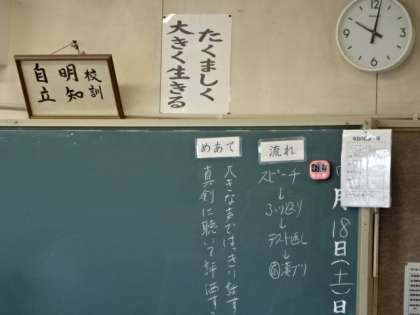 校訓
明知
自立
たくましく
大きく生きる
月18日(土)日
流れ
スピーチ
↓
ふり返り
↓
テスト返し
↓
漢プリ
めあて
大きな声ではっきり話す
真剣に聴いて評価す